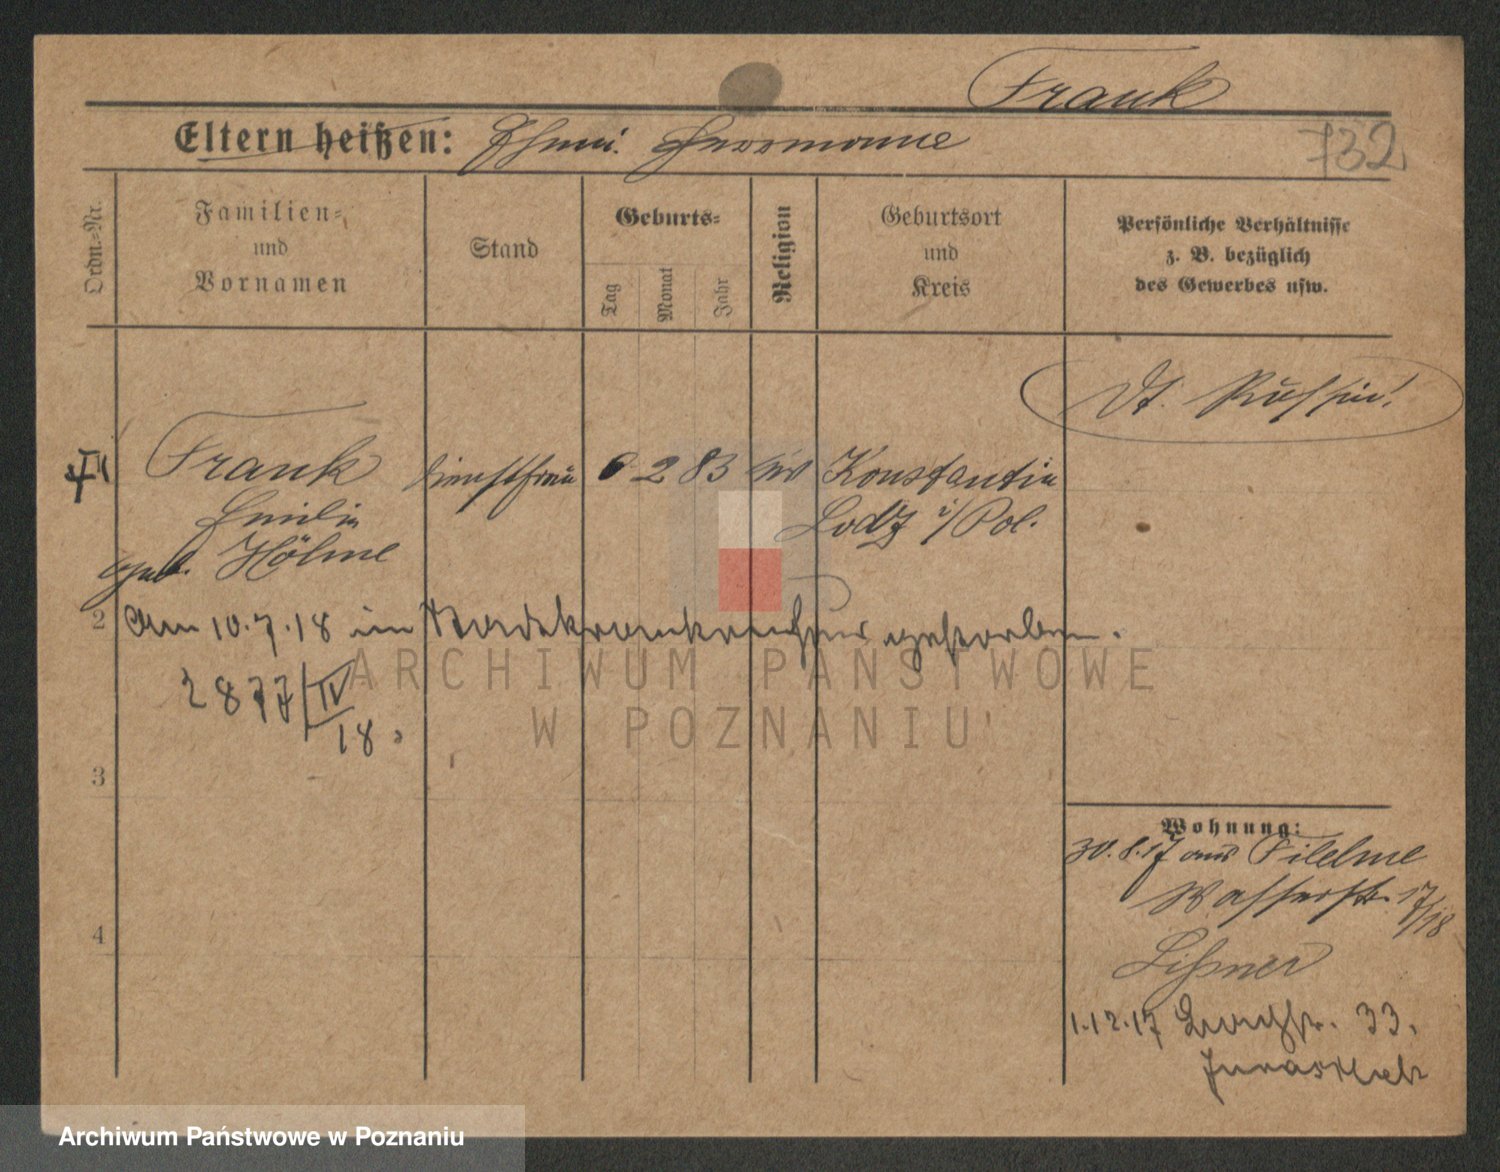 Frank
Eltern heißen: Ehem. Herrmann
732
Ordn.-Nr.
Familien-
und
Vornamen
Stand
Geburts-
Tag
Monat
Jahr
Religion
Geburtsort
und
Kreis
Persönliche Verhältnisse
z. B. bezüglich
des Gewerbes usw.
Dt. Russin!
Frank
Emilie
geb. Hölme
Dienstfrau
6 2 83 ev
Konstantin
Lodz i/Pol.
2
Am 10.7.18 im Stadtkrankenhaus gestorben.
2877/IV
18.
3
4
Wohnung:
30.8.17 aus Filehne
Wasserstr. 17/18
Lißner
1.12.17 33.
ARCHIWUM PAŃSTWOWE
W POZNANIU
Archiwum Państwowe w Poznaniu